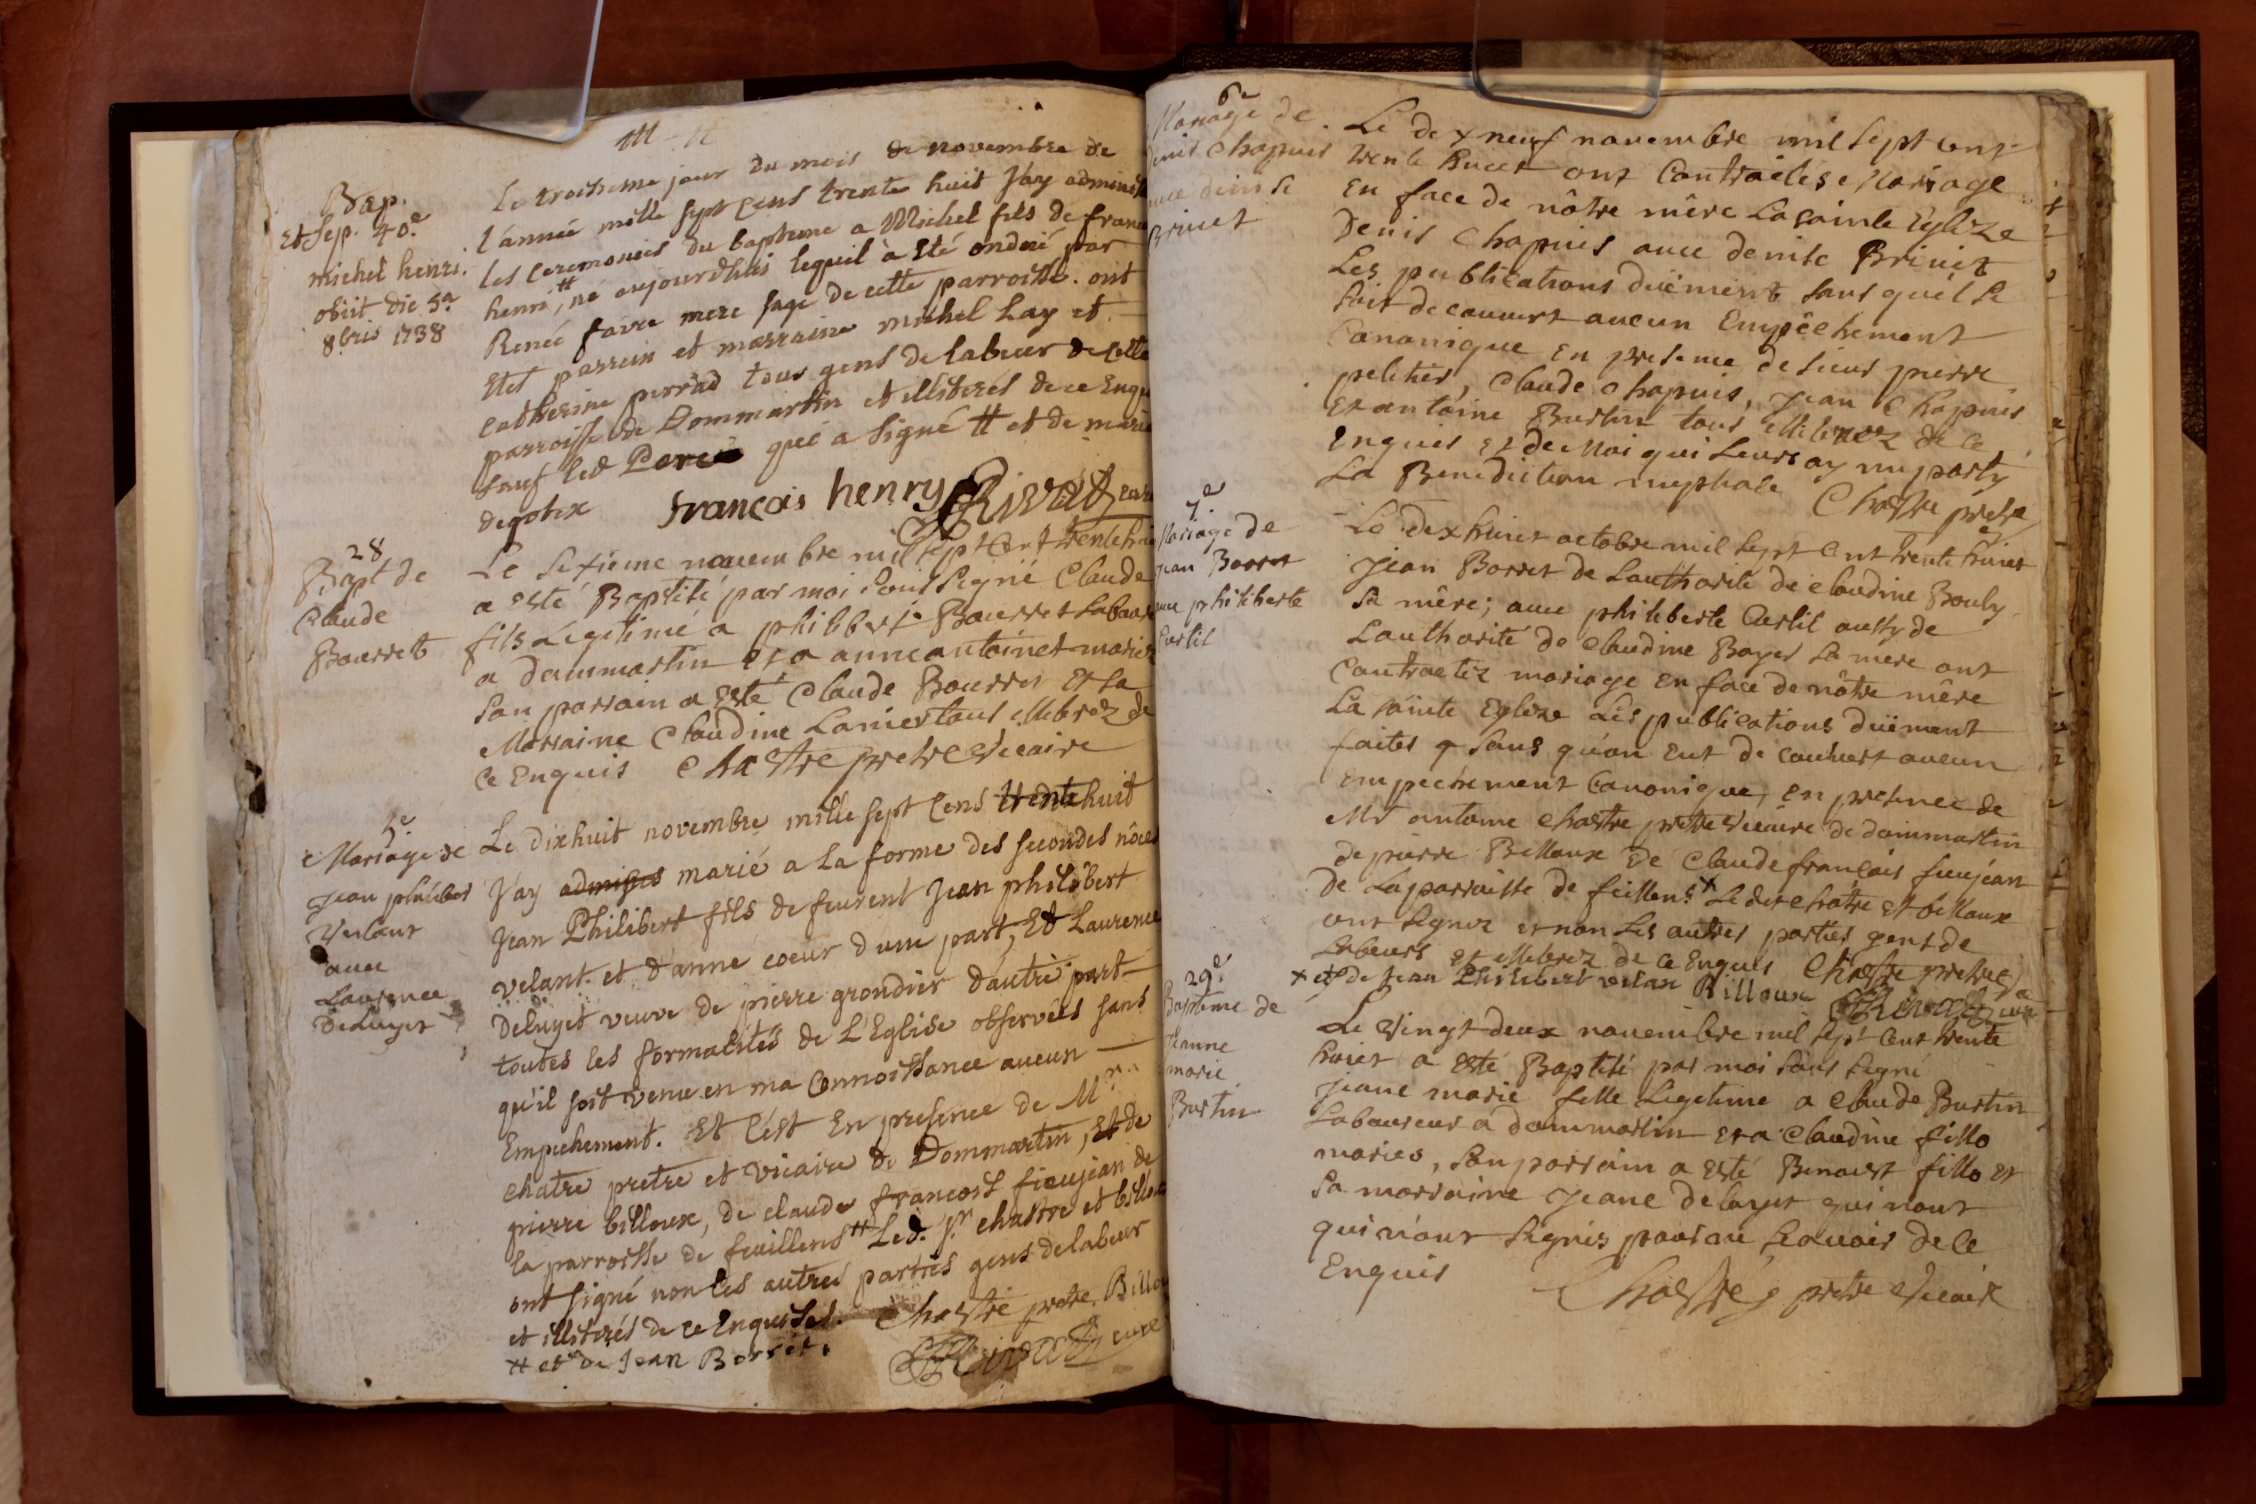 Bap.
Et Sep. 40.e
michel henri.
obiit die 5a
8bris 1738
le troisieme jour du mois de novembre de
l'année mille sept cens trente huit J'ay administ
les ceremonies du bapteme a Michel fils de franc
henri, tt né aujourdhui lequel à Eté ondoié par
Renée favre mere sage de cette parroisse. ont
Etés parrein et marraine michel Lay et
catherine perrad tous gens de labeur de cette
parroisse de Dommartin et illiterés de ce Enqu
sauf led Pere qui a signé tt et de marie
degotex françois henry Rivat curé
28
Bapt de
Claude
Bourret
Le sixieme novembre mil sept cent trente huit
a esté Baptisé par moi sous signé Claude
fils Legitime a philibert Bourret laboure
a dammartin et a anne antoinet mariez
son parrain a esté Claude Bourret Et sa
Marraine Claudine Lanier tous illitrez de
ce Enquis Chastre pretre Vicaire
5e
Mariage de
Jean philiber
Velant
avec
Laurence
Deluyet
Le dixhuit novembre mille sept cens trente huit
J'ay admises marié a la forme des secondes nôces
Jean Philibert fils de feurent Jean philibert
velant et d'anne coeur d'une part, Et Laurence
Deluyet veuve de pierre grondier d'autre part
toutes les formalités de L'Eglise observées sans
qu'il soit venu en ma Connoissance aucun
Empechement. Et c'est En presence de Mre
chatre pretre et vicaire de Dommartin, et de
pierre billoux, de claude francois fieujean de
la parroisse de feuillens tt Led. Sr. chastre et billoux
ont signé non les autres parties gens de labeur
et illiterés de ce Enquises. Chastre pretre. Billou
tt et de Jean Borret. Rivat curé
6e
Mariage de
denis Chapuis
avec denise
Brivet
Le dexneuf novembre mil sept cent
trente huict ont Contractés Mariage
En face de nôtre mêre La sainte Eglize
Denis Chapuis avec denise Brivet
Les publications düement sans qu'il se
soit decouvert aucun Empêchement
Canonique en presence de sieur pierre
peletier, Claude Chapuis, Jean Chapuis
et antoine Burtin tous illiterez de ce
Enquis et de Moi qui leurs ay imparty
La Benediction nuptiale Chastre pretre
7e
Mariage de
Jean Borret
avec philiberte
Curtil
Le dexhuict octobre mil sept cent trente huict
Jean Borret de Lauthorité de claudine Bouly
sa mêre; avec philiberte Curtil aussy de
Lauthorité de Claudine Boyer sa mere ont
Contractez mariage en face de nôtre mêre
La sainte Eglize Les publications düement
faites & sans qu'on eut de couvert aucun
empechement Canonique, en presence de
Mr antoine Chastre pretre Vicaire de dommartin
de pierre Billoux de Claude françois fieujean
De la parroisse de feillens x Ledit chatre et billoux
ont signez et non les autres parties gens de
Labeurs et illiterez de ce Enquis Chastre pretre
x et de Jean Philibert velan Billoux Rivat curé
29e
Bapteme de
Jeanne
marie
Burtin
Le Vingt deux novembre mil sept cent trente
huict a esté Baptisé par moi sous signé
Jeane marie fille Legitime a Claude Burtin
Laboureur a dommartin et a Claudine fillo
mariés, son parrain a esté Benoist fillo et
sa marraine Jeane deluyet qui n'ont
qui n'ont signés pour ne scavoir de ce
Enquis Chastre pretre Vicaire